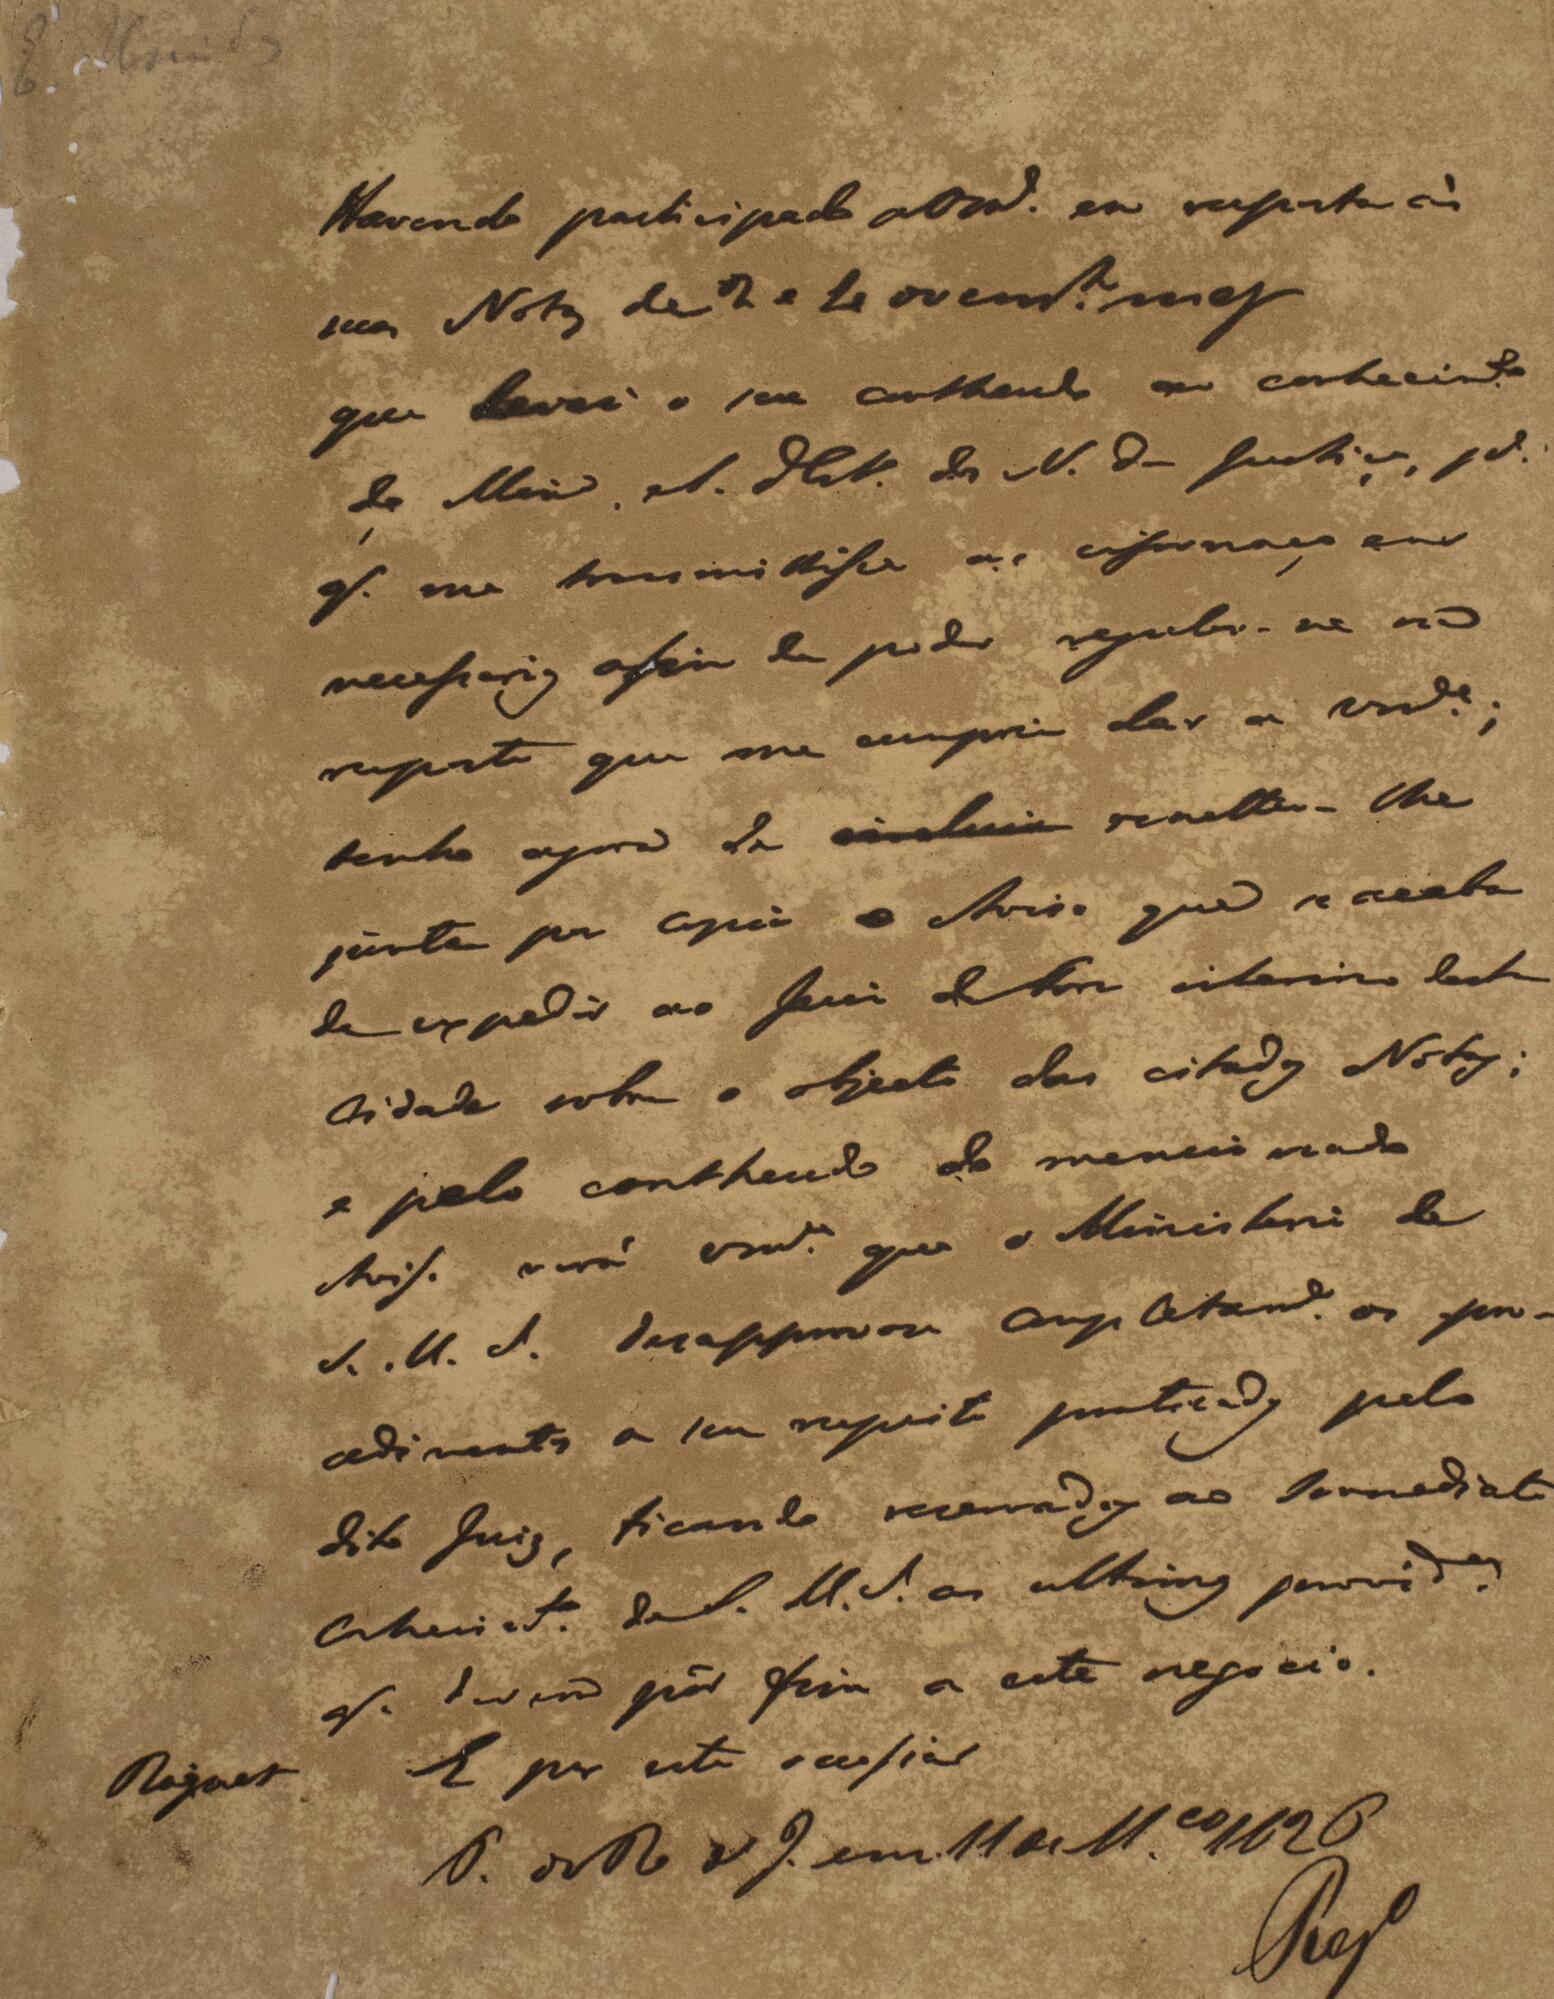 Havendo participado a Vm.ce em resposta ás
suas Notas de 2 e do corrente mez
que levei o seu contheudo ao conhecim.to
do Min.o e S. d'Est. dos N. da Justiça, p.a
q. me transmittisse as informaçoens
necessarias afim de poder regular-me na
resposta que me cumpria dar a Vm.ce;
tenho agora de incluir remetter-lhe
junta por copia o Aviso que se acaba
de expedir ao Juiz de Fora interino desta
Cidade sobre o objecto das citadas Notas;
e pelo contheudo do mencionado
Aviso verá Vm.ce que o Ministerio de
S. M. I. desapprova completam.te os pro-
cedimentos a seu respeito praticados pelo
dito Juiz, ficando reservadas ao Immediato
Conhecim.to de S. M. I. as ultimas provid.as
q. devem pôr fim a este negocio.
Raguet E por esta occasião
P. do Rio de J. em 11 de M.ço 1826